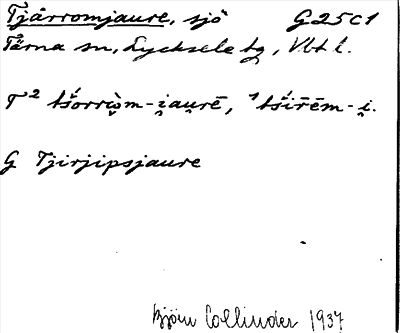 Tjårromjaure, sjö G25C1
Tärna sn, Lycksele lg, Vbt l.
T² tšorrò̬m-i̯au̯rē, ¹tšīrēm-i̯.
G Tjirjipsjaure
Björn Collinder 1937